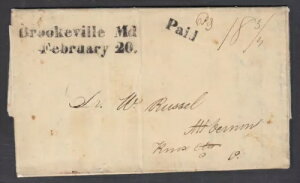 Brookeville Md
February 20.
Paid
18 3/4
Dr. Wm Russel
Mt Vernon
Knox
O.